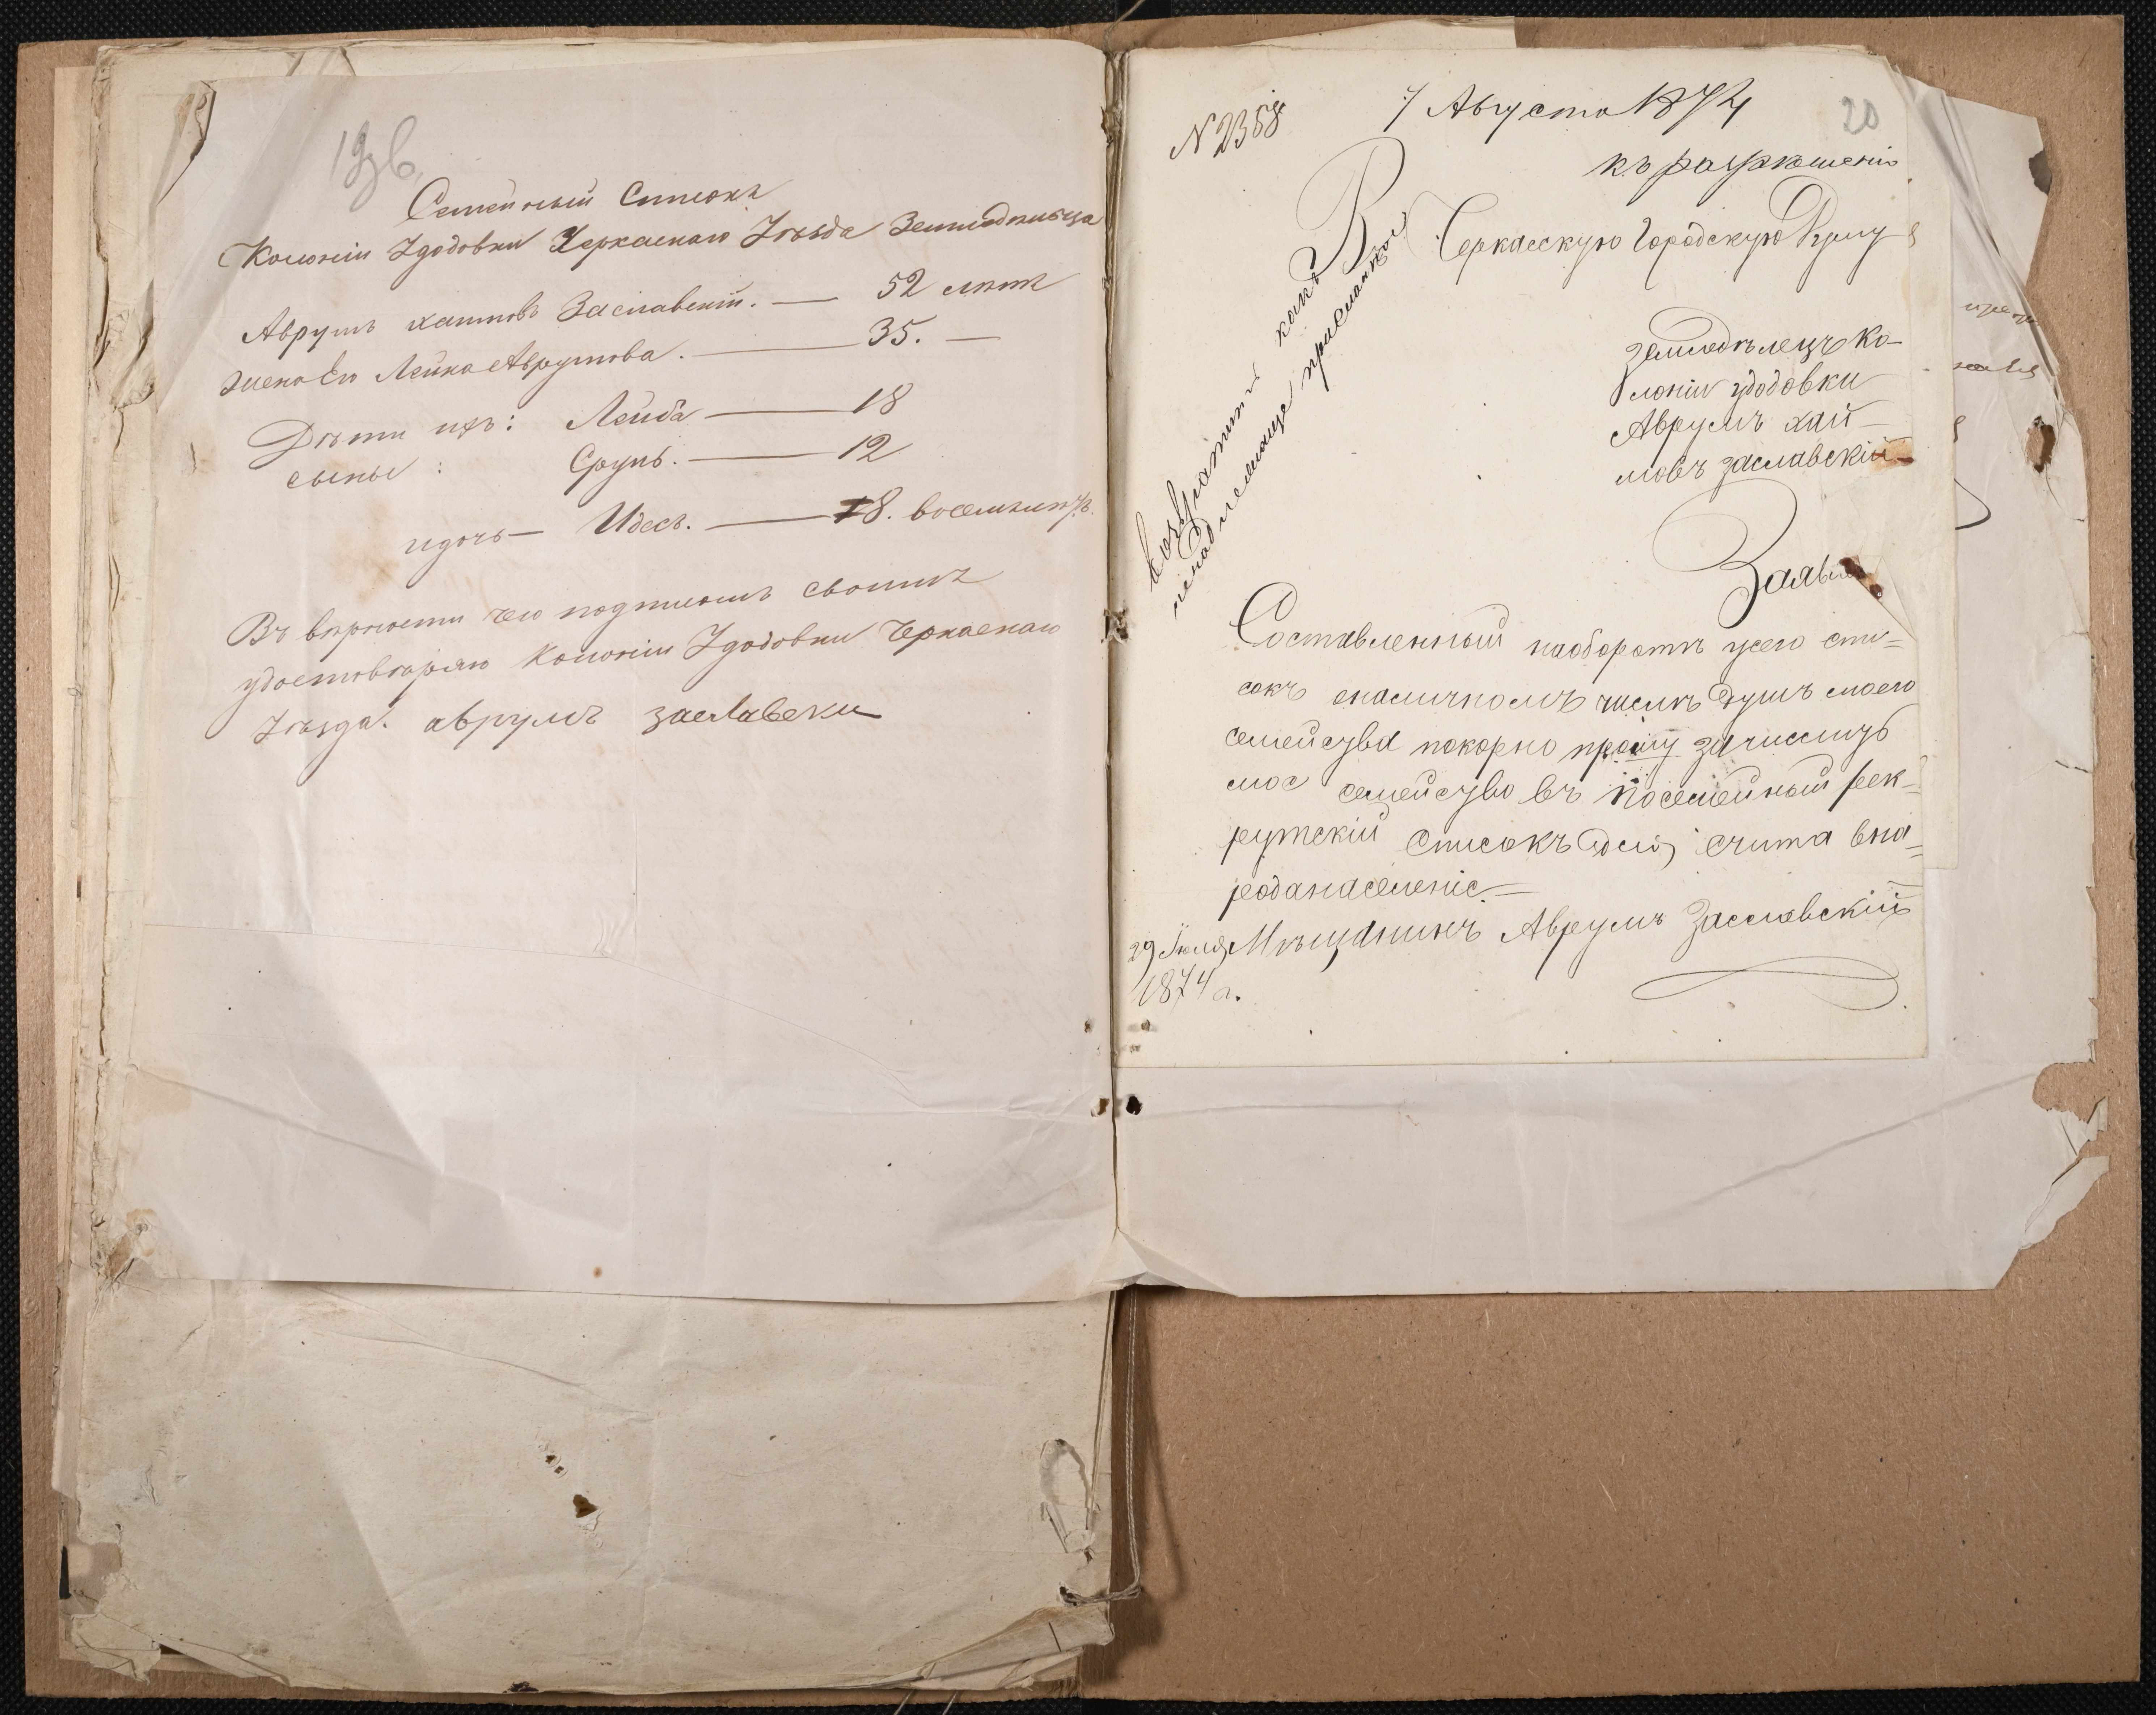 Семейный Списокъ
Колоніи Удодовки Черкаскаго Уѣзда Земледѣльца
Аврумъ Хаимовъ Заславскій. — 52 лѣтъ
жена Его Лейка Аврумова. — 35. —
Дѣти ихъ: Лейба — 18
сыны : Сруль. — 12
идочь — Идесъ. — 8. восемьлѣтъ.
Въ вѣрности чего подписомъ своимъ
удостовѣряю Колоніи Удодовки Черкаскаго
Уѣзда. аврумъ заславски
N 2358
7 Августа 1874
20
къ разрѣшенію
В Черкасскую Городскую Думу
возвратить какъ
ненадлежаще присланное
земледѣлецъ ко-
лоніи удодовки
Аврумъ хаи-
мовъ заславскій
Составленный наоборотѣ усего спи-
сокъ оналичномъ числѣ душъ моего
семейства покорно прошу зачислить
мое семейство въ посемейный рек-
рутскій списокъ для счита вна-
родонаселеніе. —
29 Іюля Мѣщанинъ Аврумъ Заславскій
1874 г.